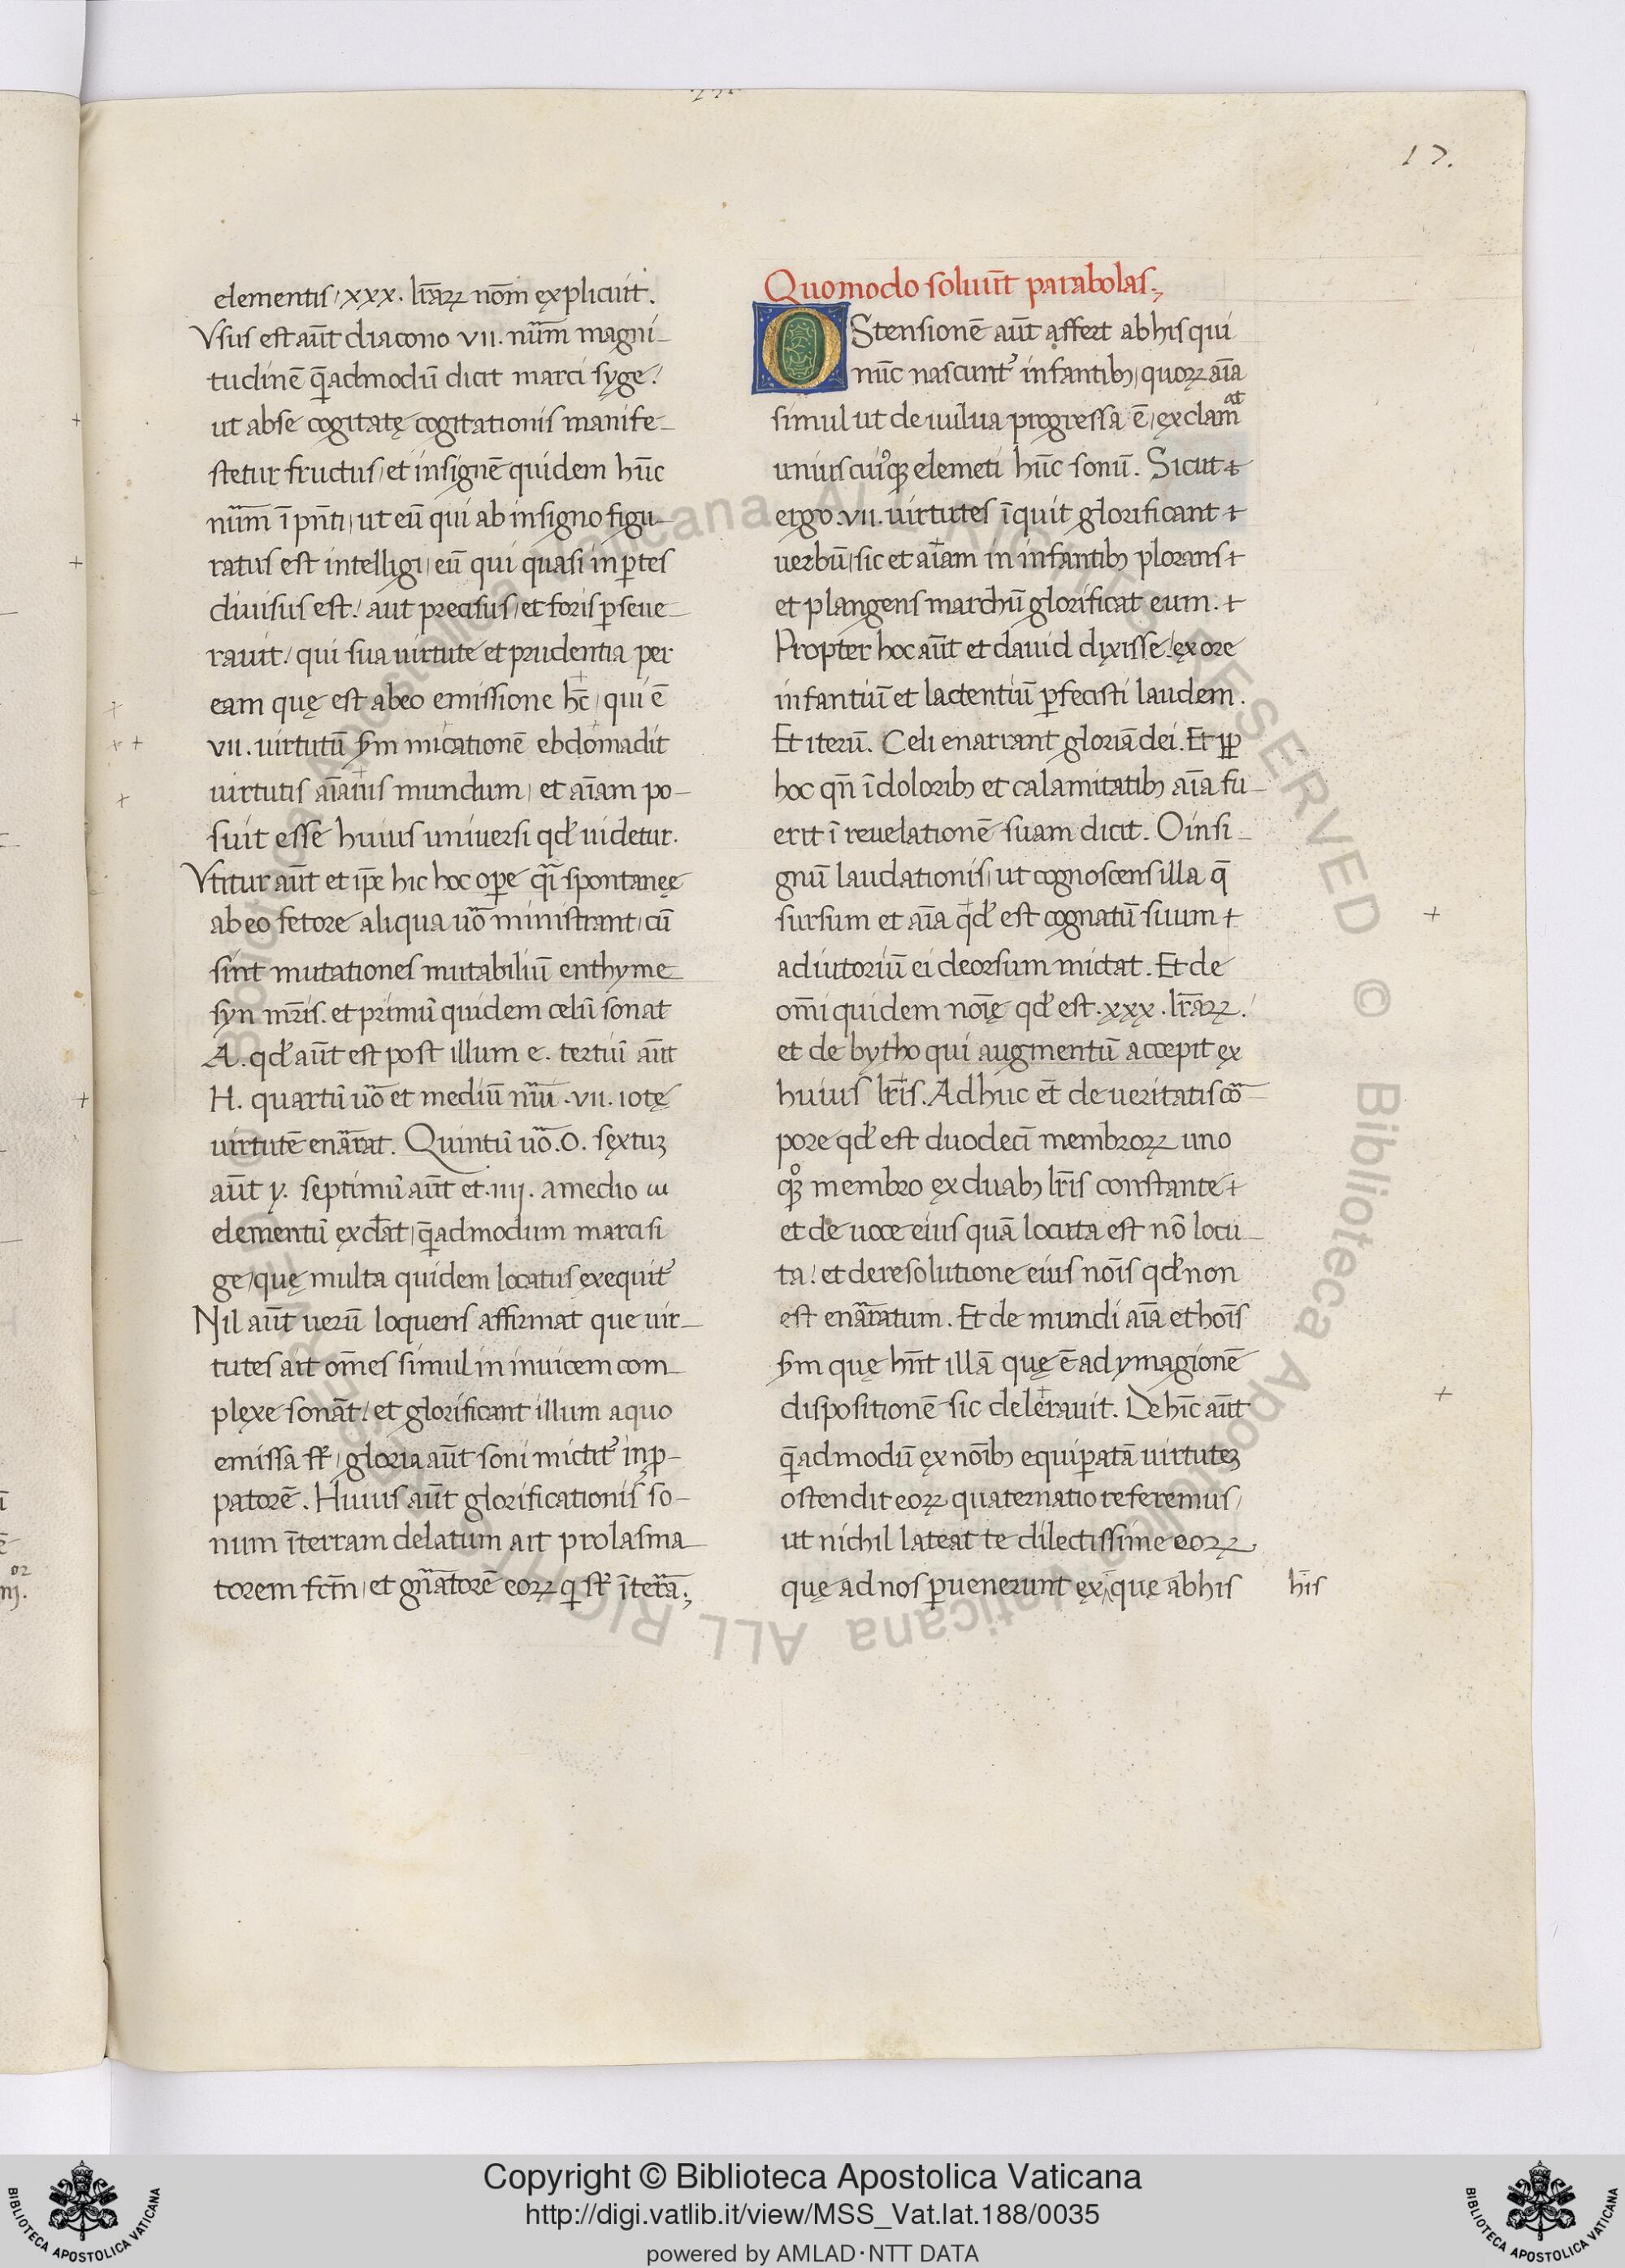 17.
elementis, xxx. lr̄aꝝ nom̄ explicuit.
Vsus est aūt diacono vii. nūm magni-
tudinē q̄admodū dicit marci syge.
ut abse cogitatę cogitationis manife-
stetur fructus, et insignē quidem hūc
nūm ī pn̄ti, ut eū qui ab insigno figu-
ratus est intelligi, eū qui quasi in ꝑtes
diuisus est. aut precisus, et foris ꝑseue-
rauit. qui sua uirtute et prudentia per
eam quę est abeo emissione hc̄, qui ē
vii. uirtutū ſm micationē ebdomadit
uirtutis aīaīus mundum, et aīam po-
suit esse huius uniuersi qd' uidetur.
Vtitur aūt et ip̄e hic hoc oꝑe qī spontanęę
ab eo fetore aliqua uō ministrant, cū
sint mutationes mutabiliū enthyme-
syn mr̄is. et primū quidem celū sonat
A. qd' aūt est post illum e. tertiū aūt
H. quartū uō et mediū nm̄ū .vii. iotę
uirtutē enārat. Quintū uō .O. sextuꝫ
aūt y. septimū aūt et .iiij. amedio ω
elementū exclāt, q̄admodum marcisi
ge, quę multa quidem locatus exequit'
Nil aūt uerū loquens affirmat que uir-
tutes ait om̄es simul in inuicem com
plexe sonāt. et glorificant illum aquo
emissa st̄, gloria aūt soni mictit' in ꝓ-
patorē. Huius aūt glorificationis so-
num īterram delatum ait prolasma
torem fctm̄, et gn̄atorē eoꝝ q st̄ ītera;
Quomodo soluūt parabolas;
OStensionē aūt affert ab his qui
nūc nascunt' infantibꝫ, quoꝝ aīa
at
simul ut de uulua progressa ē, exclam
uniuscuiꝰqꝫ elemeti hūc sonū. Sicut +
ergo .vii. uirtutes īquit glorificant +
uerbū, sic et aīam in infantibꝫ plorans +
et plangens marchū glorificat eum. +
Propter hoc aūt et dauid dixisse. ex ore
infantiū et lactentiū ꝑfecisti laudem.
Et iterū. Celi enarrant gloriā dei. Et ꝓp
hoc qn̄ ī doloribꝫ et calamitatibꝫ aīa fu-
erit ī reuelationē suam dicit. O insi-
gnū laudationis, ut cognoscens illa q̄
sursum et aīa qd' est cognatū suum +
adiutoriū ei deorsum mictat. Et de
om̄i quidem noīę qd' est .xxx. lr̄aꝝ.
et de bytho qui augmentū accepit ex
huius lr̄is. Adhuc et̄ de ueritatis cō-
pore qd' est duodecī membroꝝ uno
qꝫ membro ex duabꝫ lr̄is constante +
et de uoce eius quā locuta est nō locu-
ta. et de resolutione eius noīs qd' non
est enāratum. Et de mundi aīa et hoīs
ſm quę hn̄t illā quę ē ad ymagionē
dispositionē sic delerauit. De hīc aūt
q̄admodū ex noībꝫ equiꝑatā uirtuteꝫ
ostendit eoꝝ quaternatio referemus,
ut nichil lateat te dilectissime eoꝝ
que ad nos ꝑuenerunt ex, que ab his
hīs
Copyright © Biblioteca Apostolica Vaticana
http://digi.vatlib.it/view/MSS_Vat.lat.188/0035
powered by AMLAD·NTT DATA
BIBLIOTECA APOSTOLICA VATICANA
BIBLIOTECA APOSTOLICA VATICANA